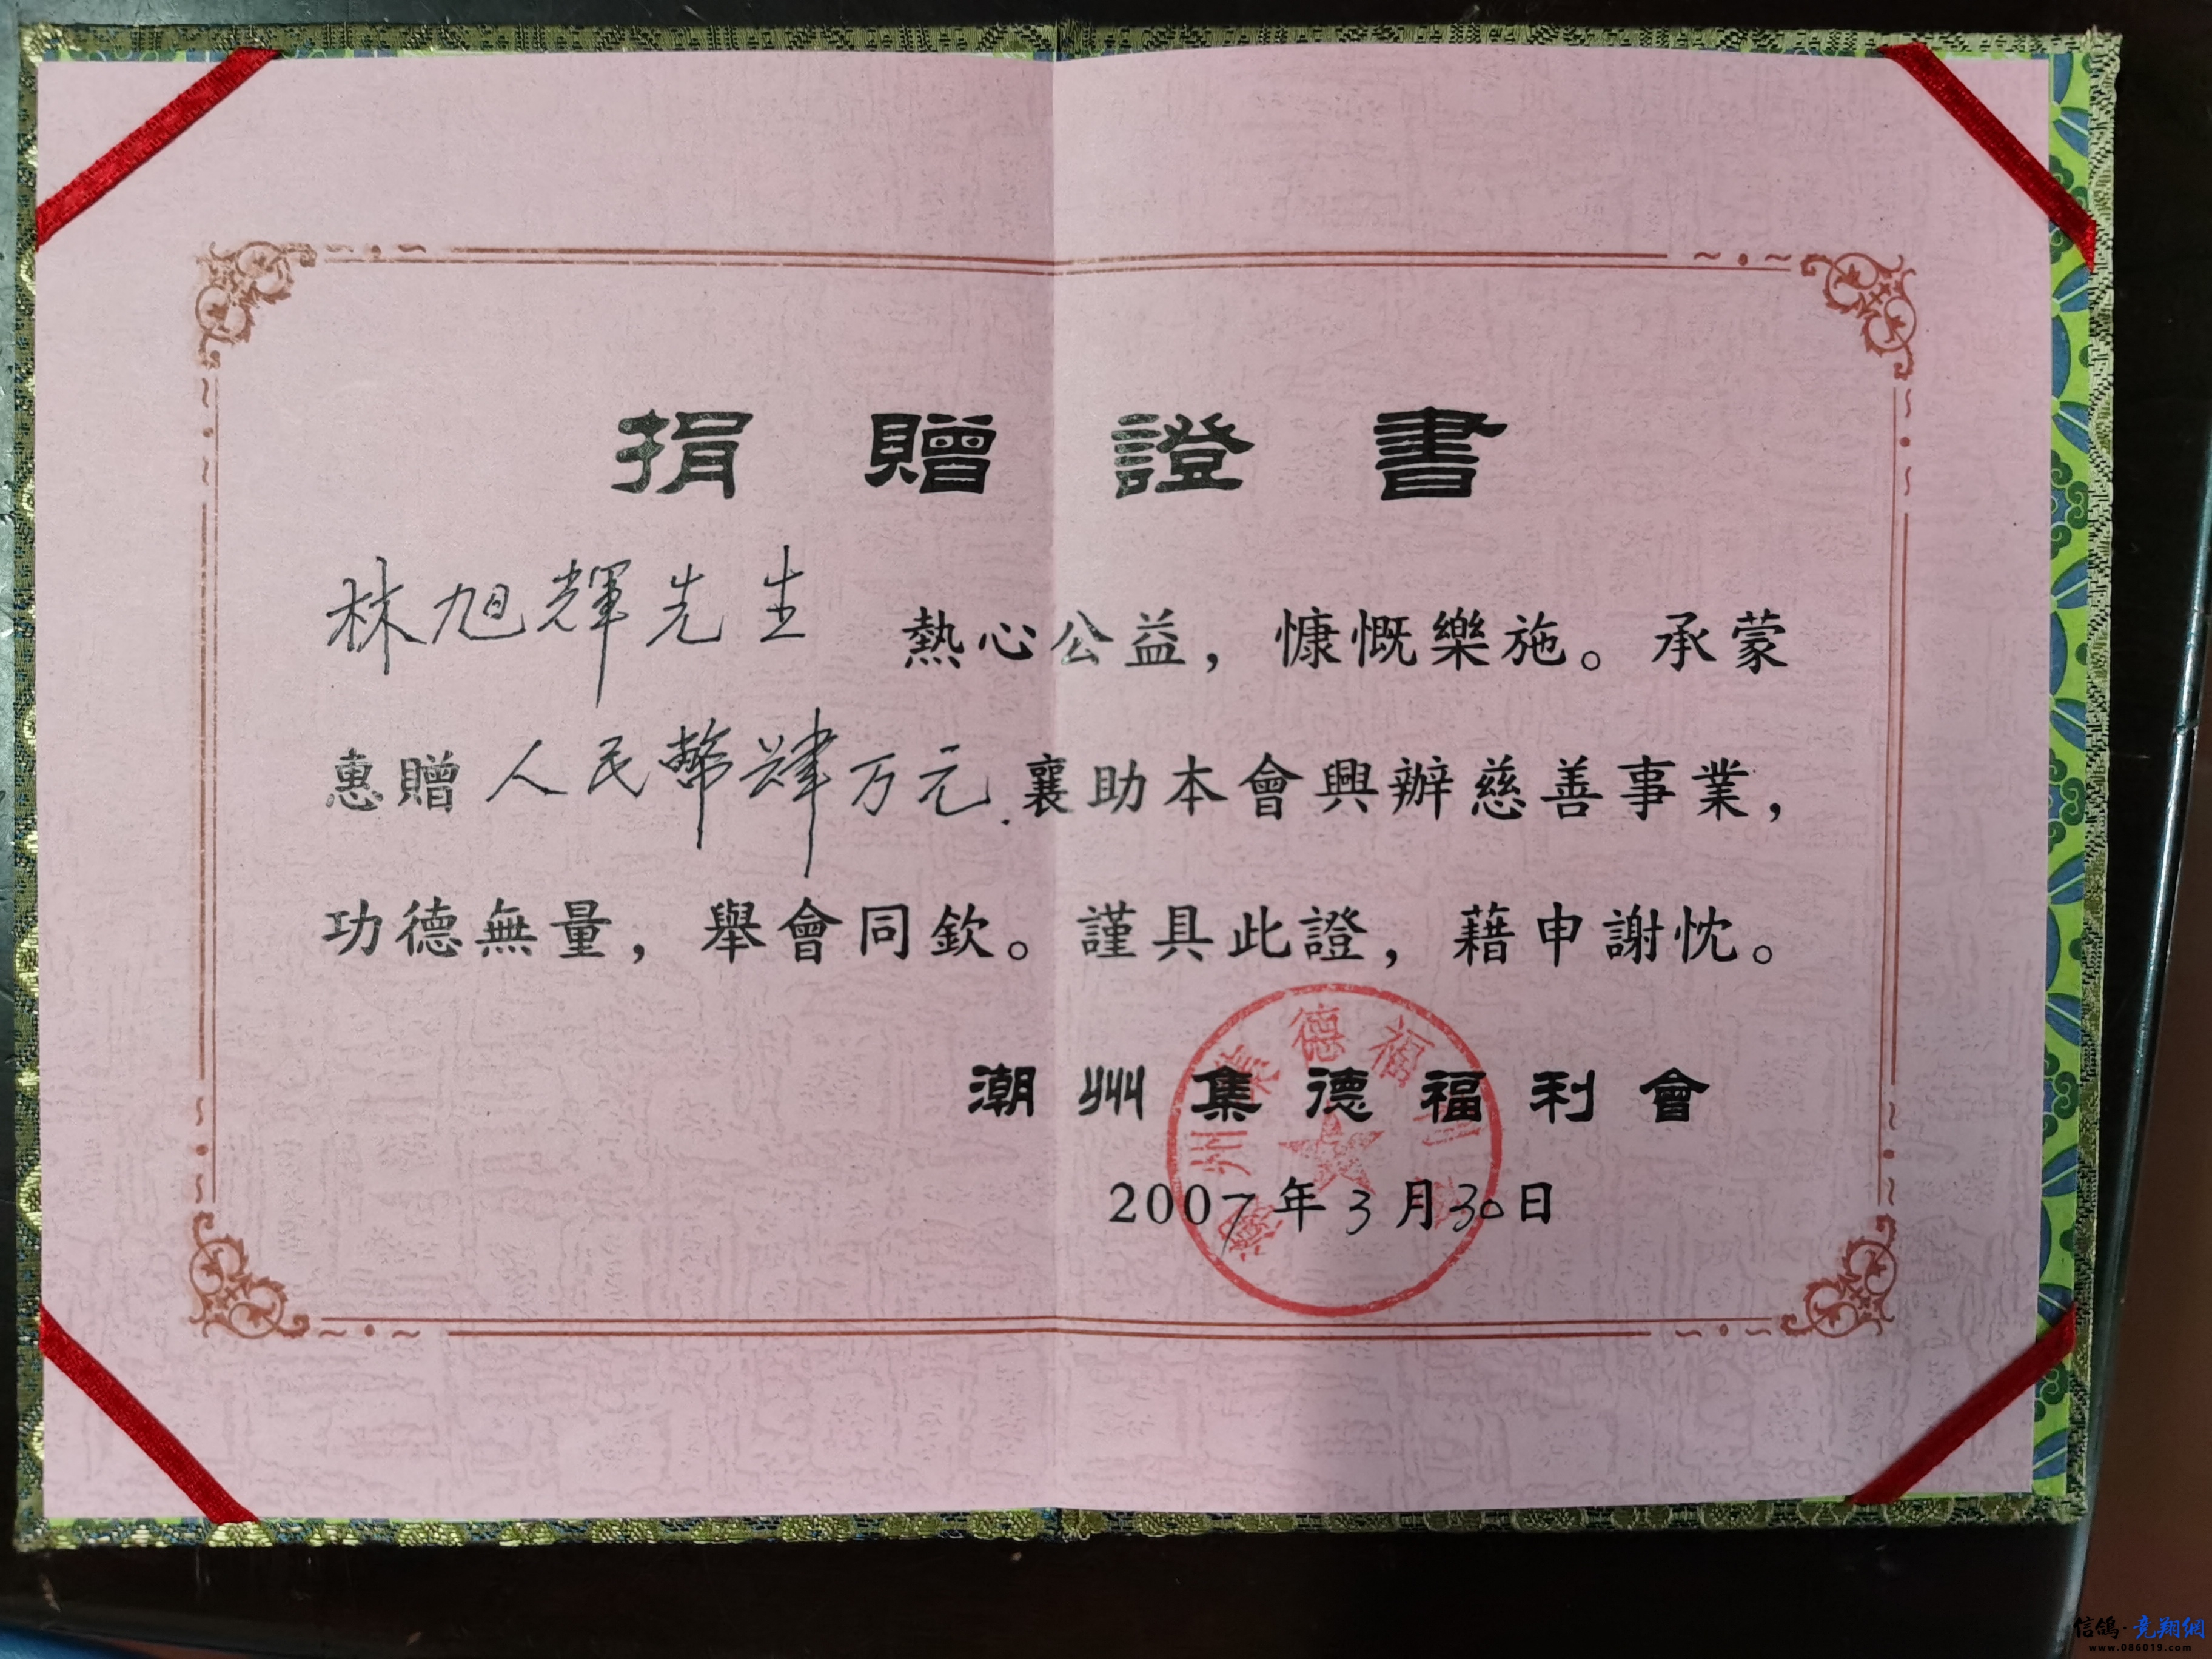 捐贈證書
林旭輝先生 熱心公益，慷慨樂施。承蒙
惠贈 人民幣肆万元 襄助本會興辦慈善事業，
功德無量，舉會同欽。謹具此證，藉申謝忱。
潮州集德福利會
2007年3月30日
潮州集德福利會
信鴿·竞翔網
www.086019.com